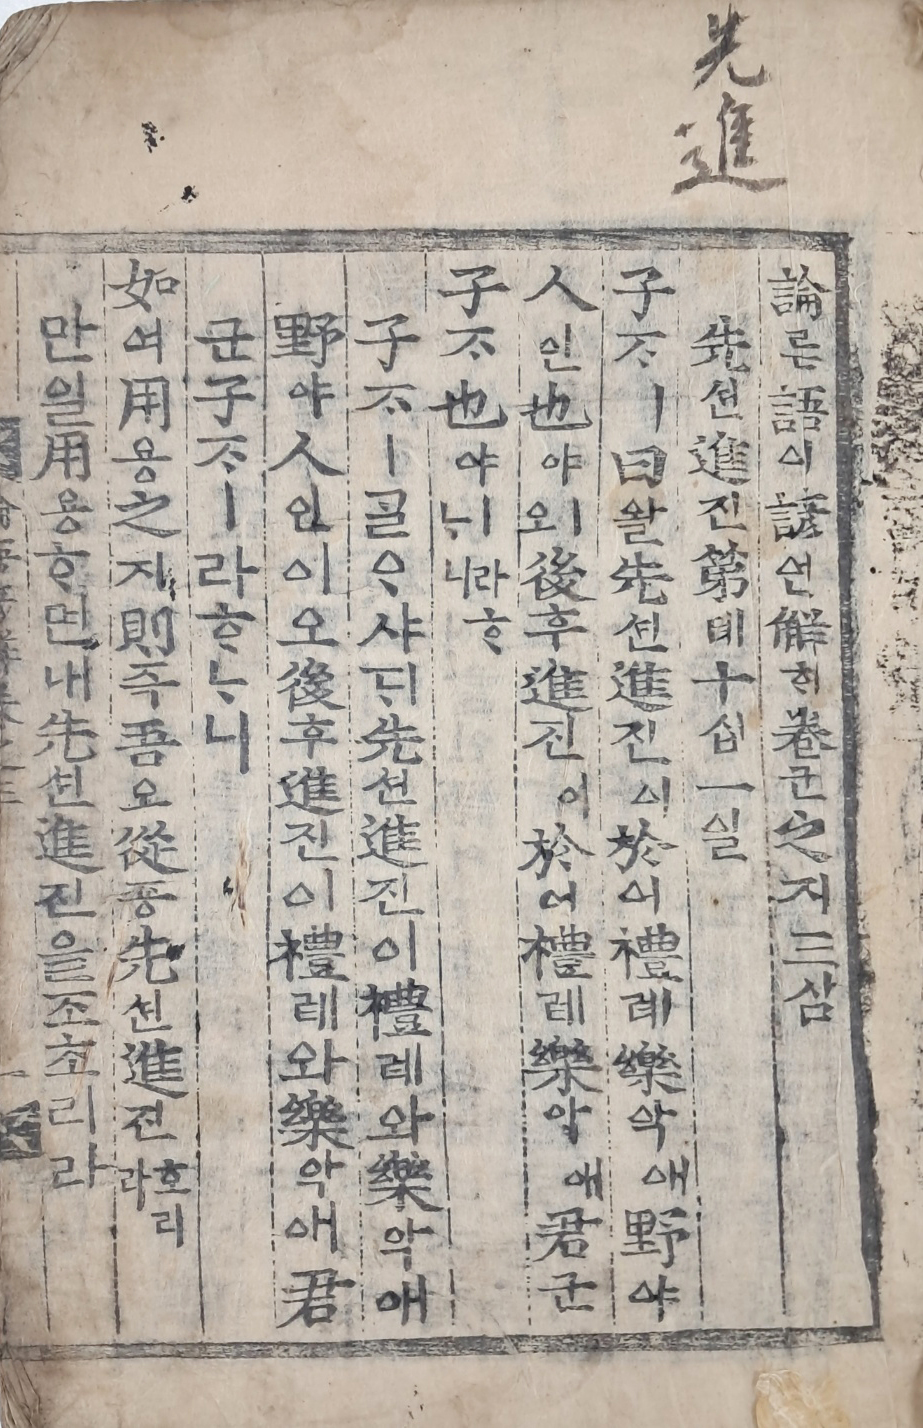 先進
論론語어諺언解ᄒᆡ卷권之지三삼
先션進진第뎨十십一일
子ᄌᆞㅣ曰왈先션進진이於어禮례樂악애野야
人인也야오ㅣ後후進진이於어禮례樂악애君군
子ᄌᆞ也야ㅣ라ᄒᆞᄂᆞ니
子ᄌᆞㅣᄀᆞᆯᄋᆞ샤ᄃᆡ先션進진이禮례와樂악애
野야人인이오後후進진이禮례와樂악애君
군子ᄌᆞㅣ라ᄒᆞᄂᆞ니
如여用용之지則즉吾오從죵先션進진호리라
만일用용ᄒᆞ면내先션進진을조초리라